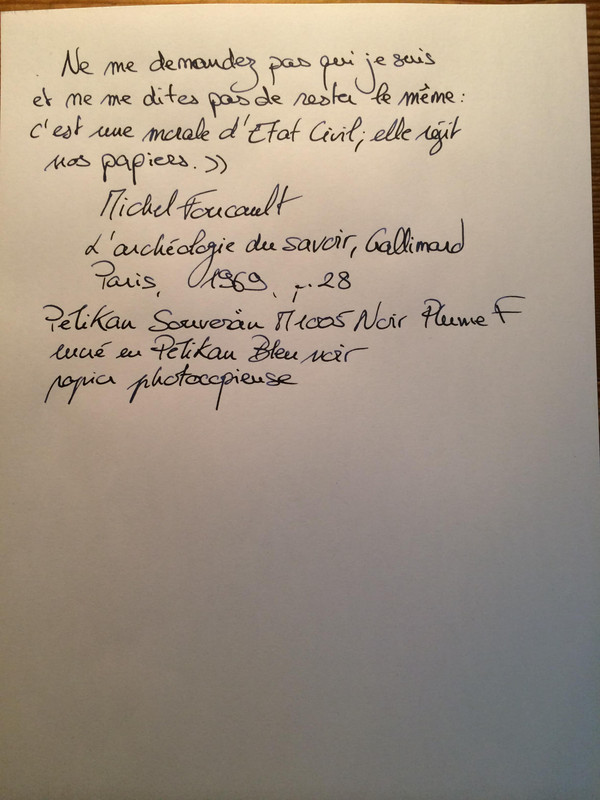 Ne me demandez pas qui je suis
et ne me dites pas de rester le même :
c'est une morale d'Etat Civil; elle régit
nos papiers. »
Michel Foucault
L'archéologie du savoir, Gallimard
Paris, 1969, p. 28
Pelikan Souverän M1005 Noir Plume F
encré en Pelikan Bleu noir
papier photocopieuse